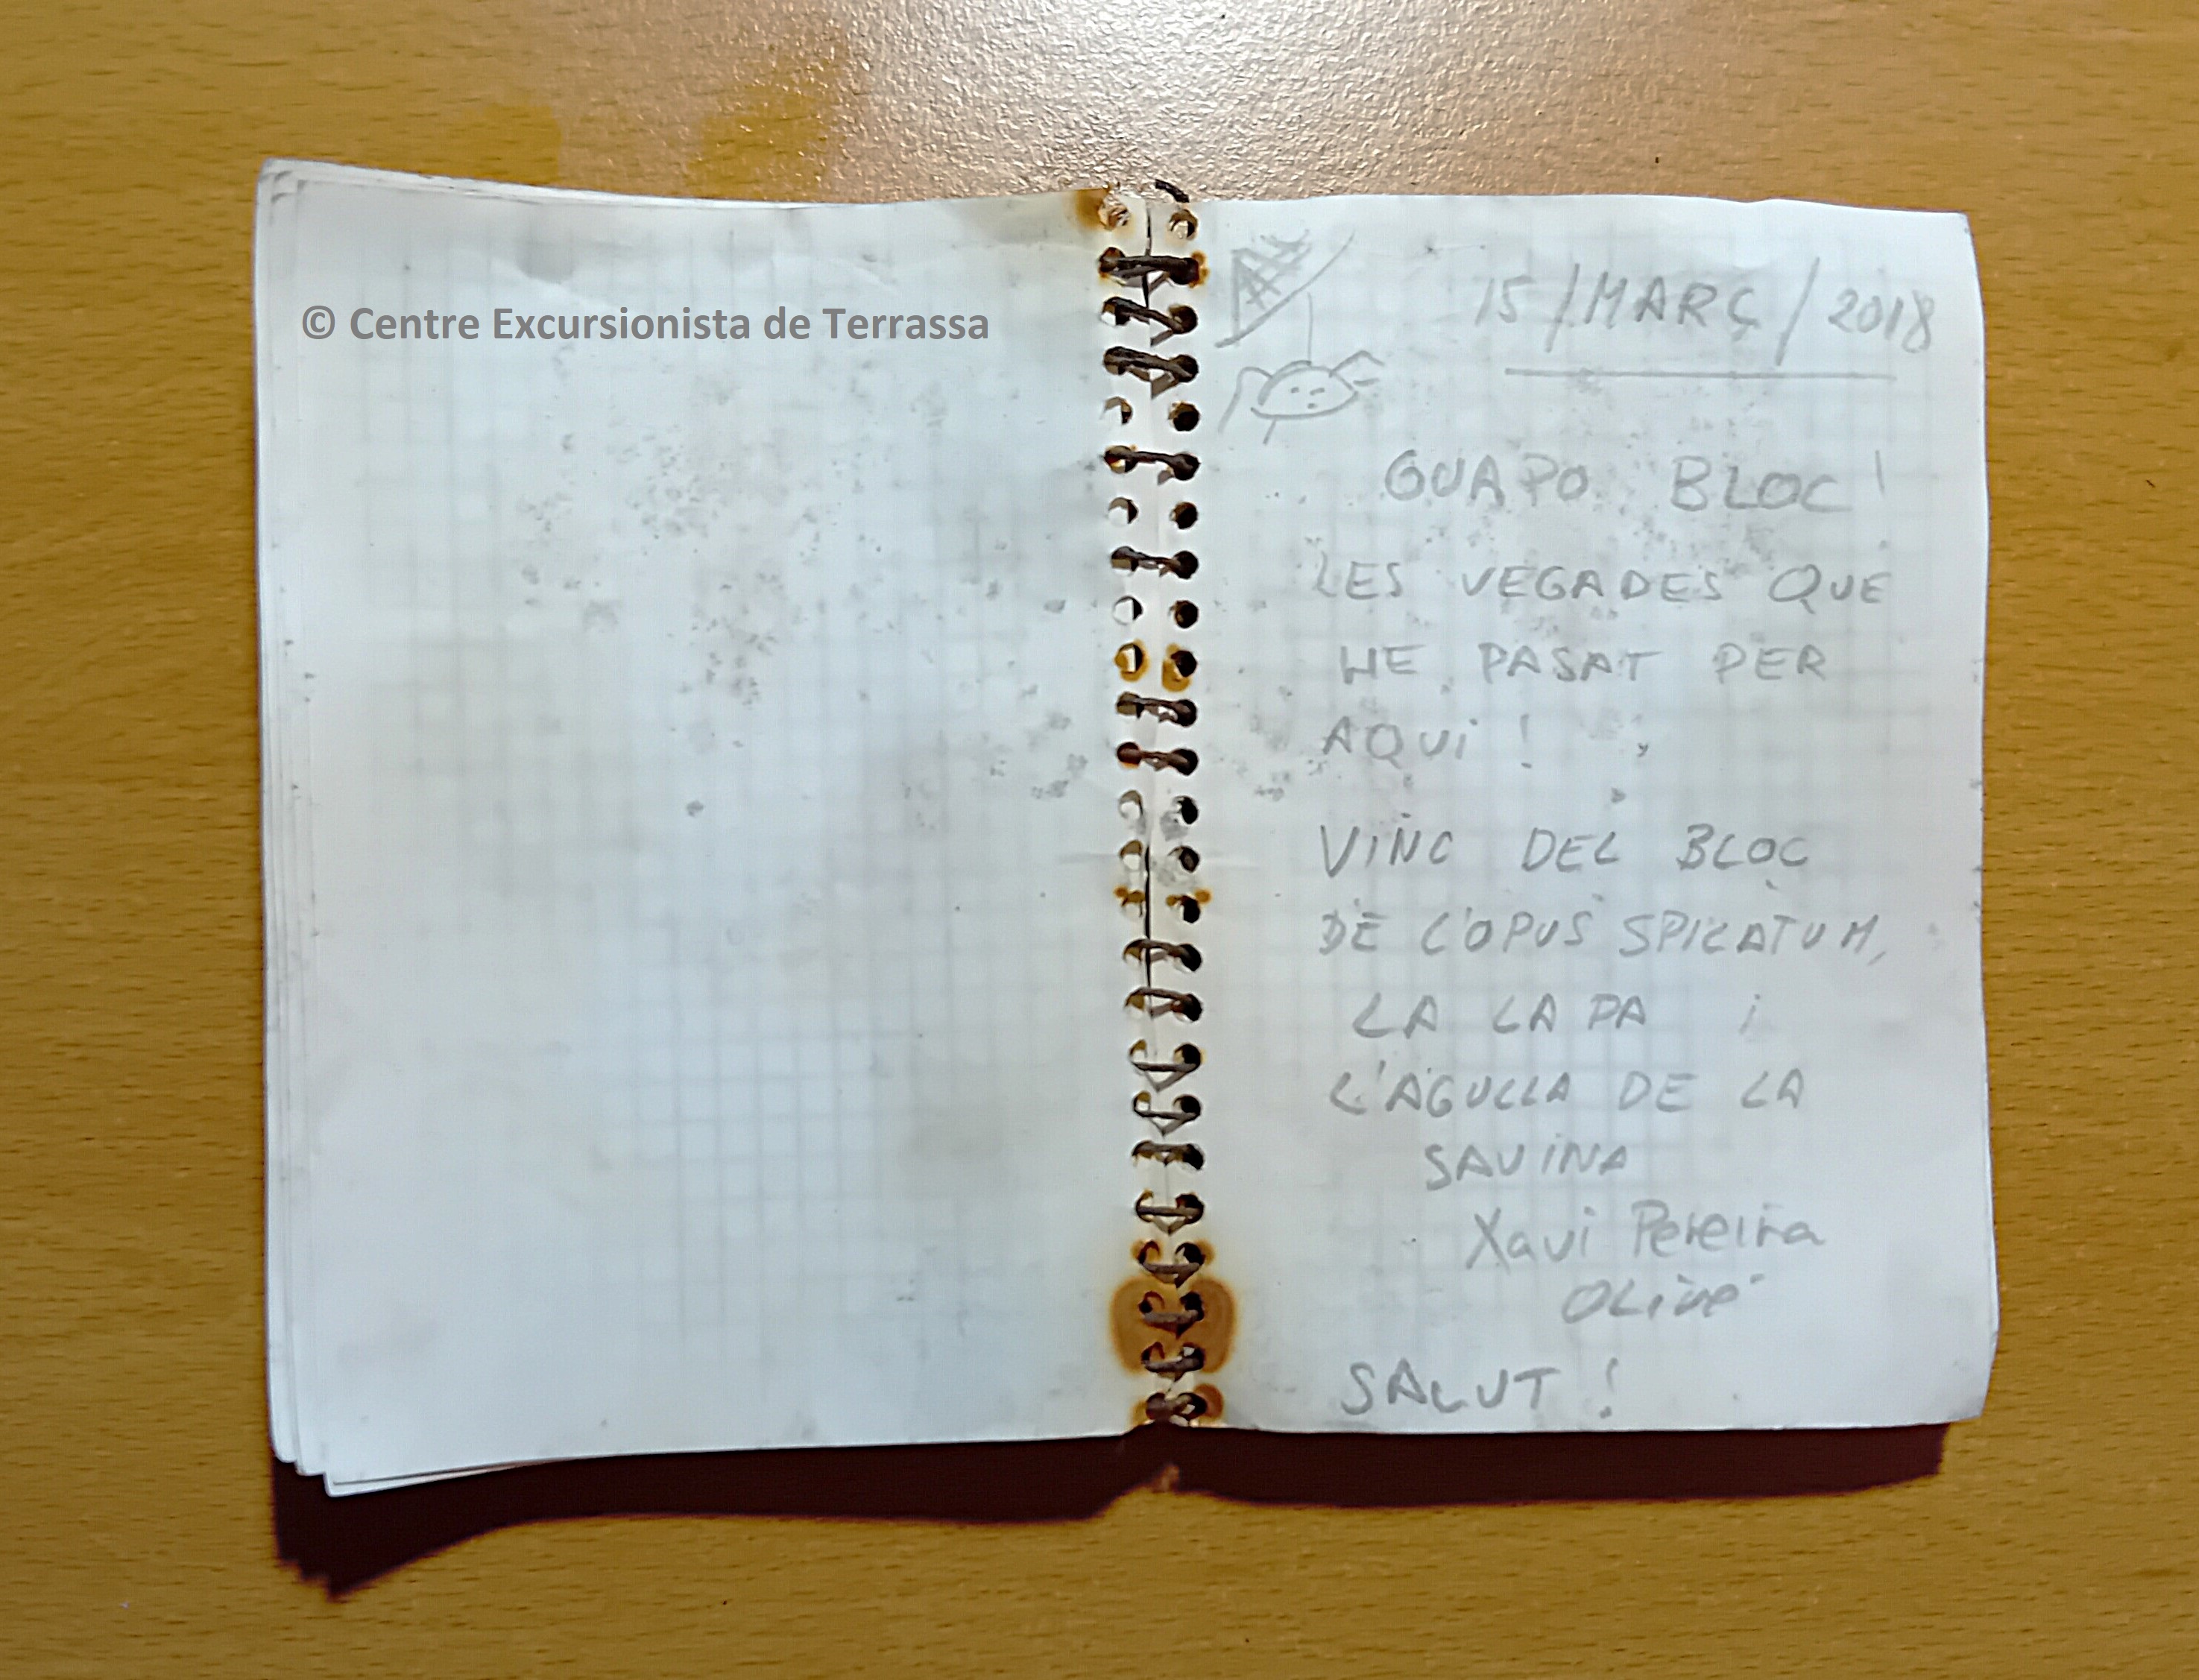 © Centre Excursionista de Terrassa
15/MARÇ/2018
GUAPO BLOC!
LES VEGADES QUE
HE PASAT PER
AQUi!
ViNC DEL BLOC
DE L'OPUS SPICATUM,
LA LAPA i
L'AGULLA DE LA
SAViNA
Xavi Pereira
OLivé
SALUT!